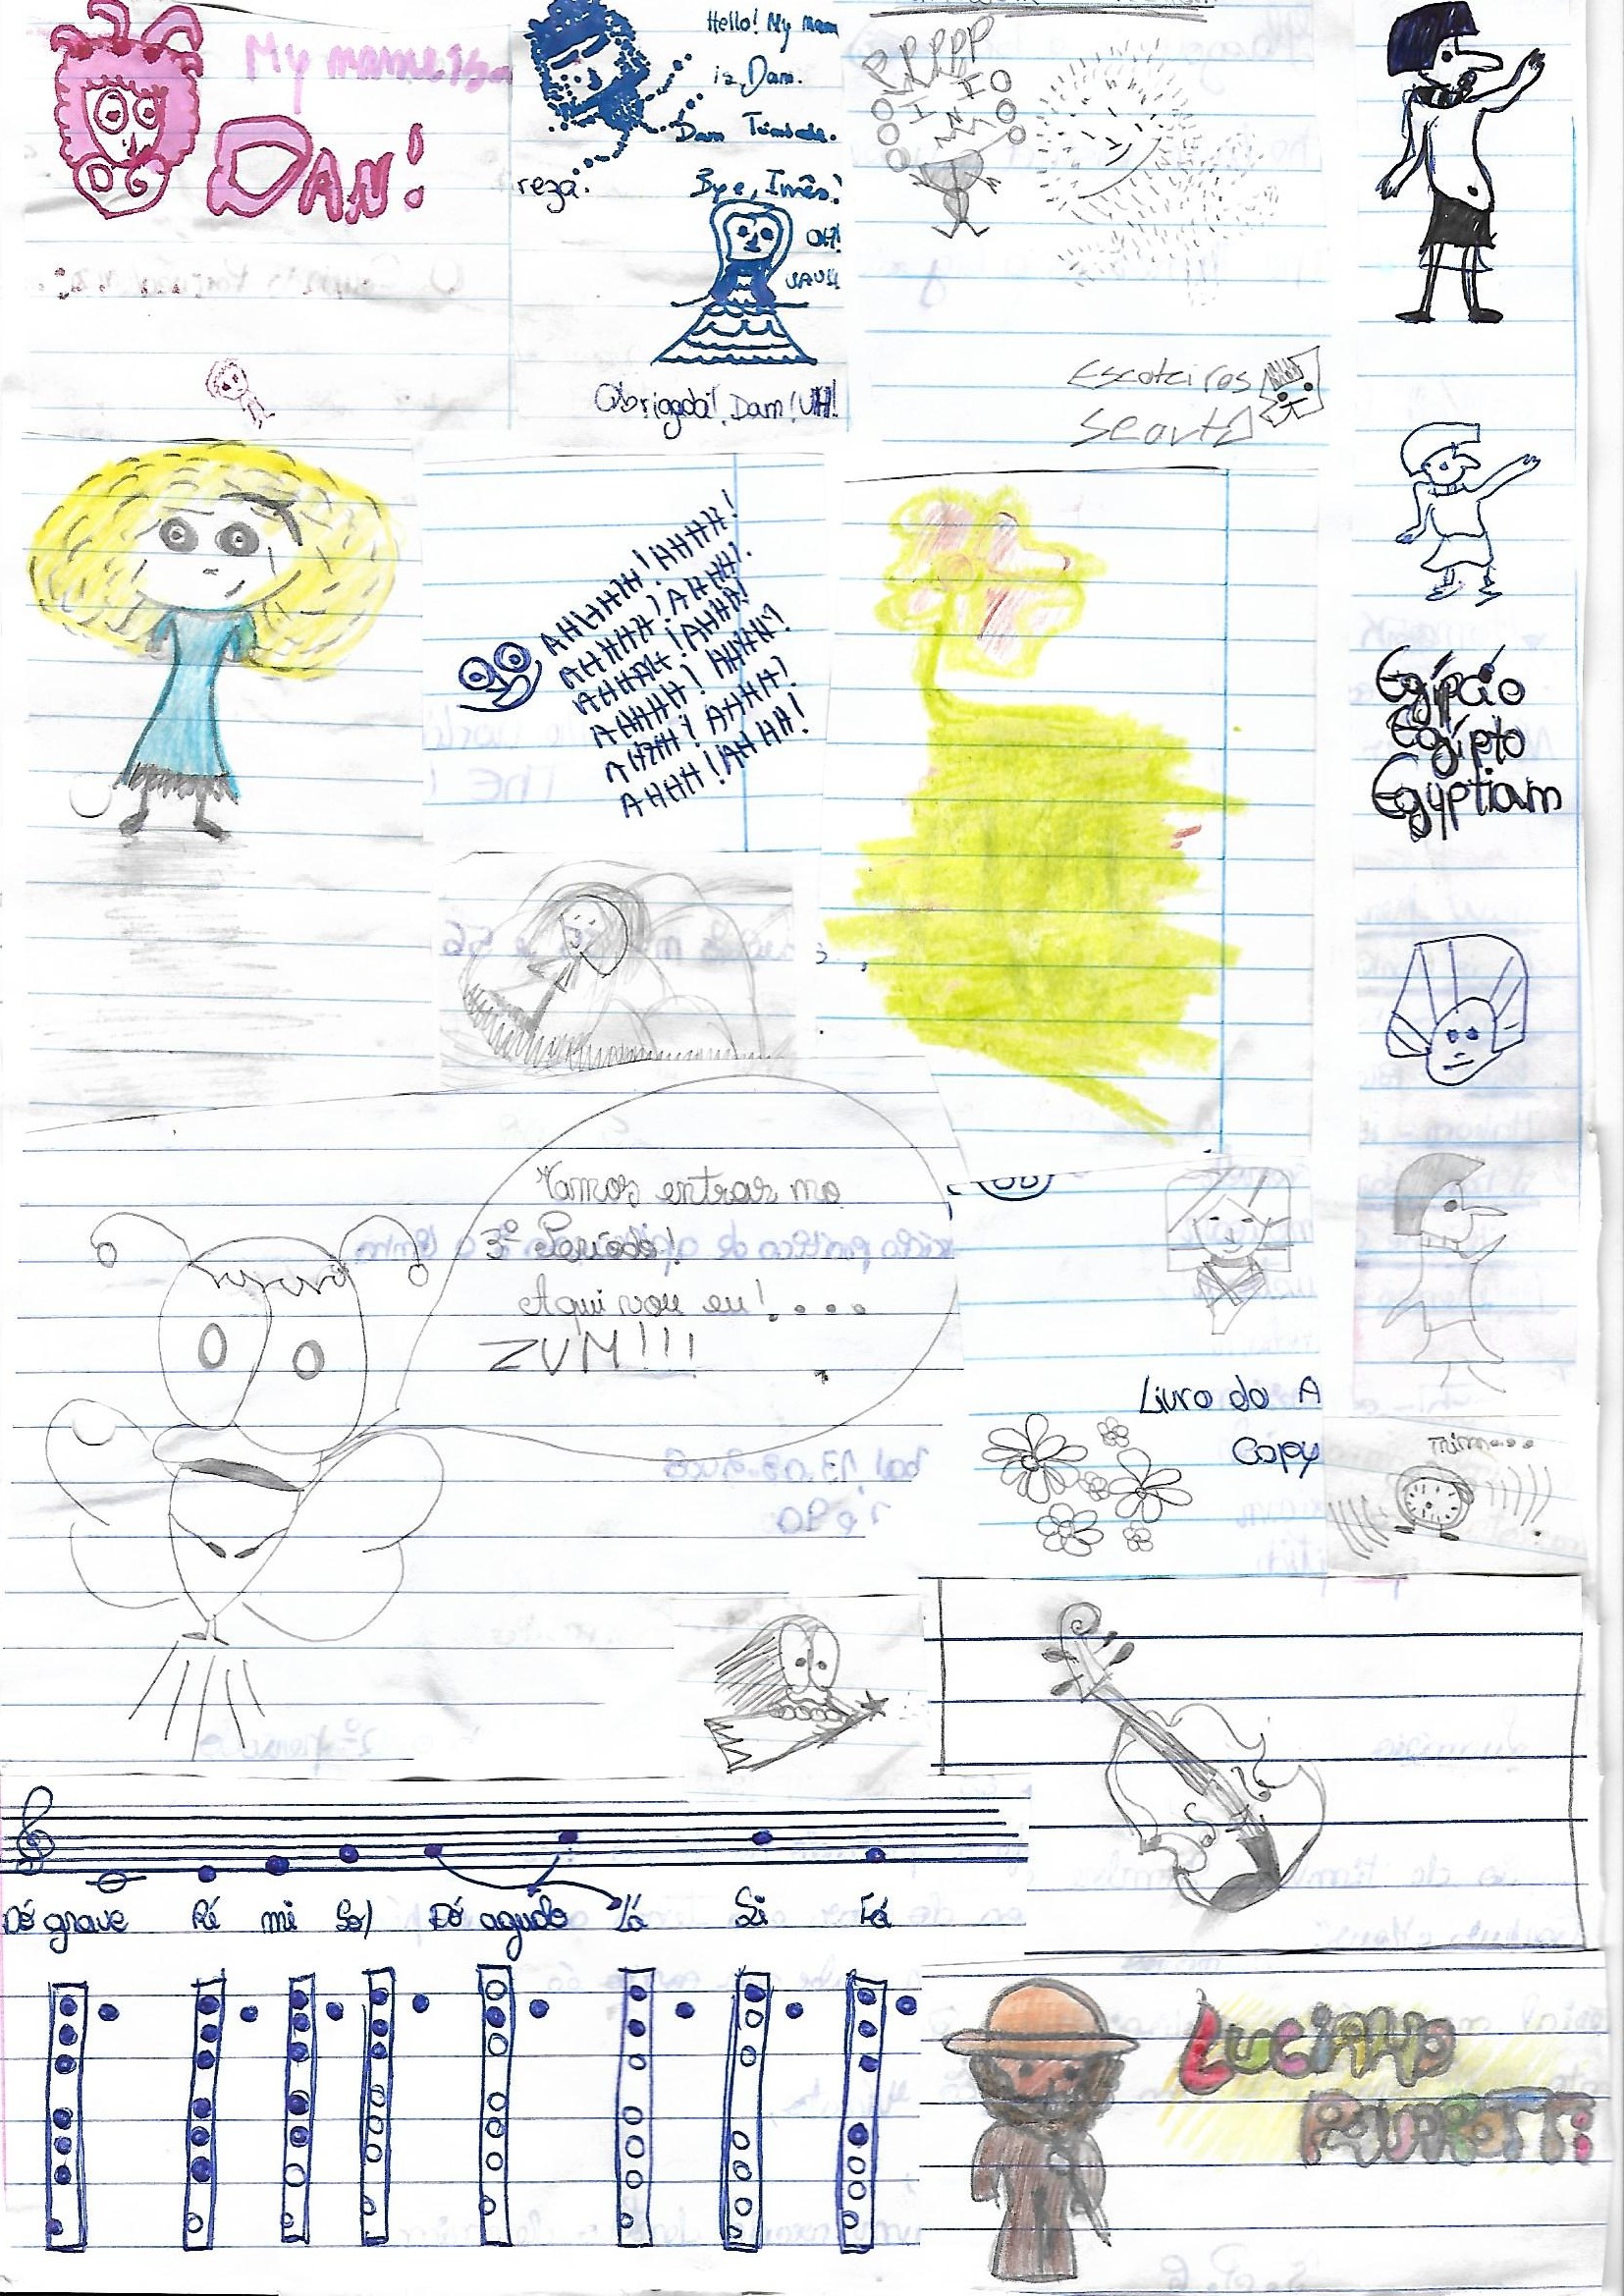 My name is
DAN!
Hello! My nam
is Dam.
Dam
reza!
Bye, Inês!
OH!
Obrigada! Dam! UH!
PPPPP
Escoteiros
AHHHHH! AHHHH!
AHHHH! AHHH!
AHHHH! AHHH!
AHHHH! AHHH!
AHHH! AHHH!
AHHH! AHHH!
Egípcio
Egípto
Egyptiam
Vamos entrar no
3º Período!
Aqui vou eu!....
ZUM!!!
Livro do A
Copy
Trim....
Dó grave Ré mi Sol Dó agudo Lá Si Fá
LUCIANO